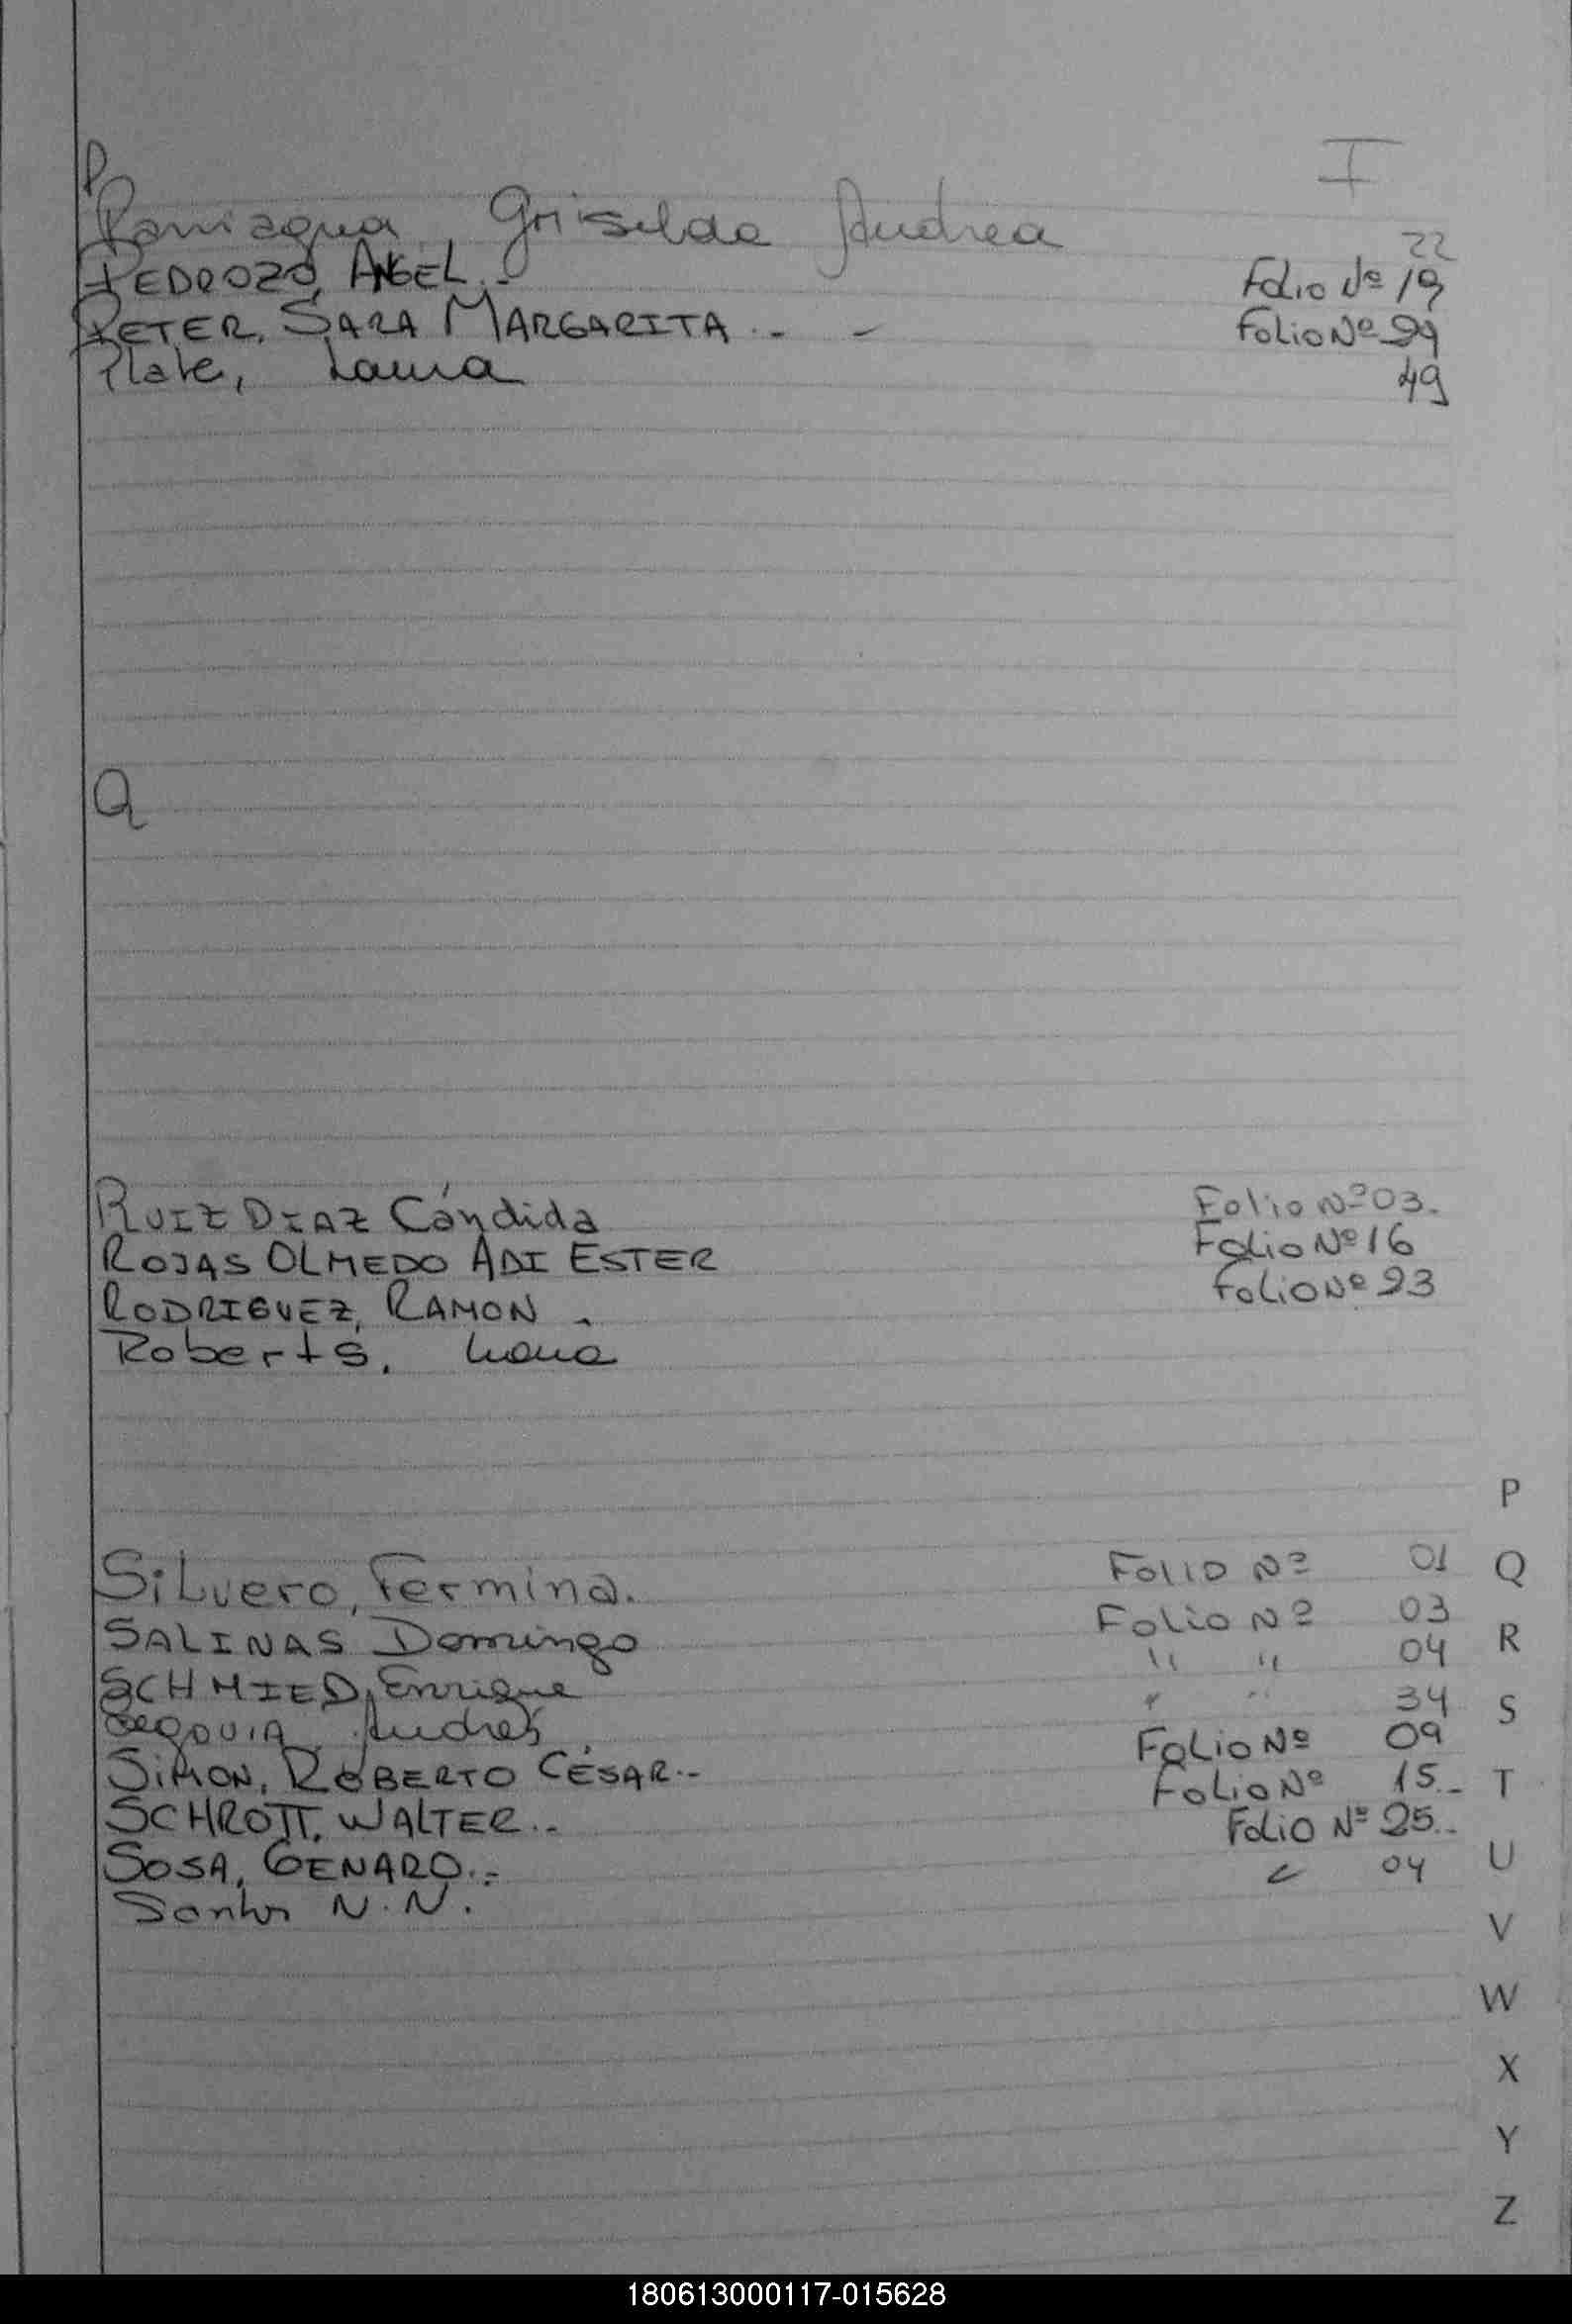 I
P
Paniagua, Griselda Andrea 22
PEDROZO, ANGEL.- Folio Nº 19
PETER, SARA MARGARITA .- - Folio Nº 29
Plate, Laura 49
Q
RUIZ DIAZ Cándida Folio Nº 03.
ROJAS OLMEDO ADI ESTER Folio Nº 16
RODRIGUEZ, RAMON . Folio Nº 23
Roberts,
P
Silvero, Fermina. Folio Nº 01
Q
SALINAS Domingo Folio Nº 03
SCHMIED, Enrique " " 04
R
Segovia, Andrés " " 34
S
SIMON, ROBERTO CÉSAR.- Folio Nº 09
SCHROTT, WALTER.. Folio Nº 15.-
T
SOSA, GENARO.- Folio Nº 25..
Santos N.N. 04
U
V
W
X
Y
Z
180613000117-015628